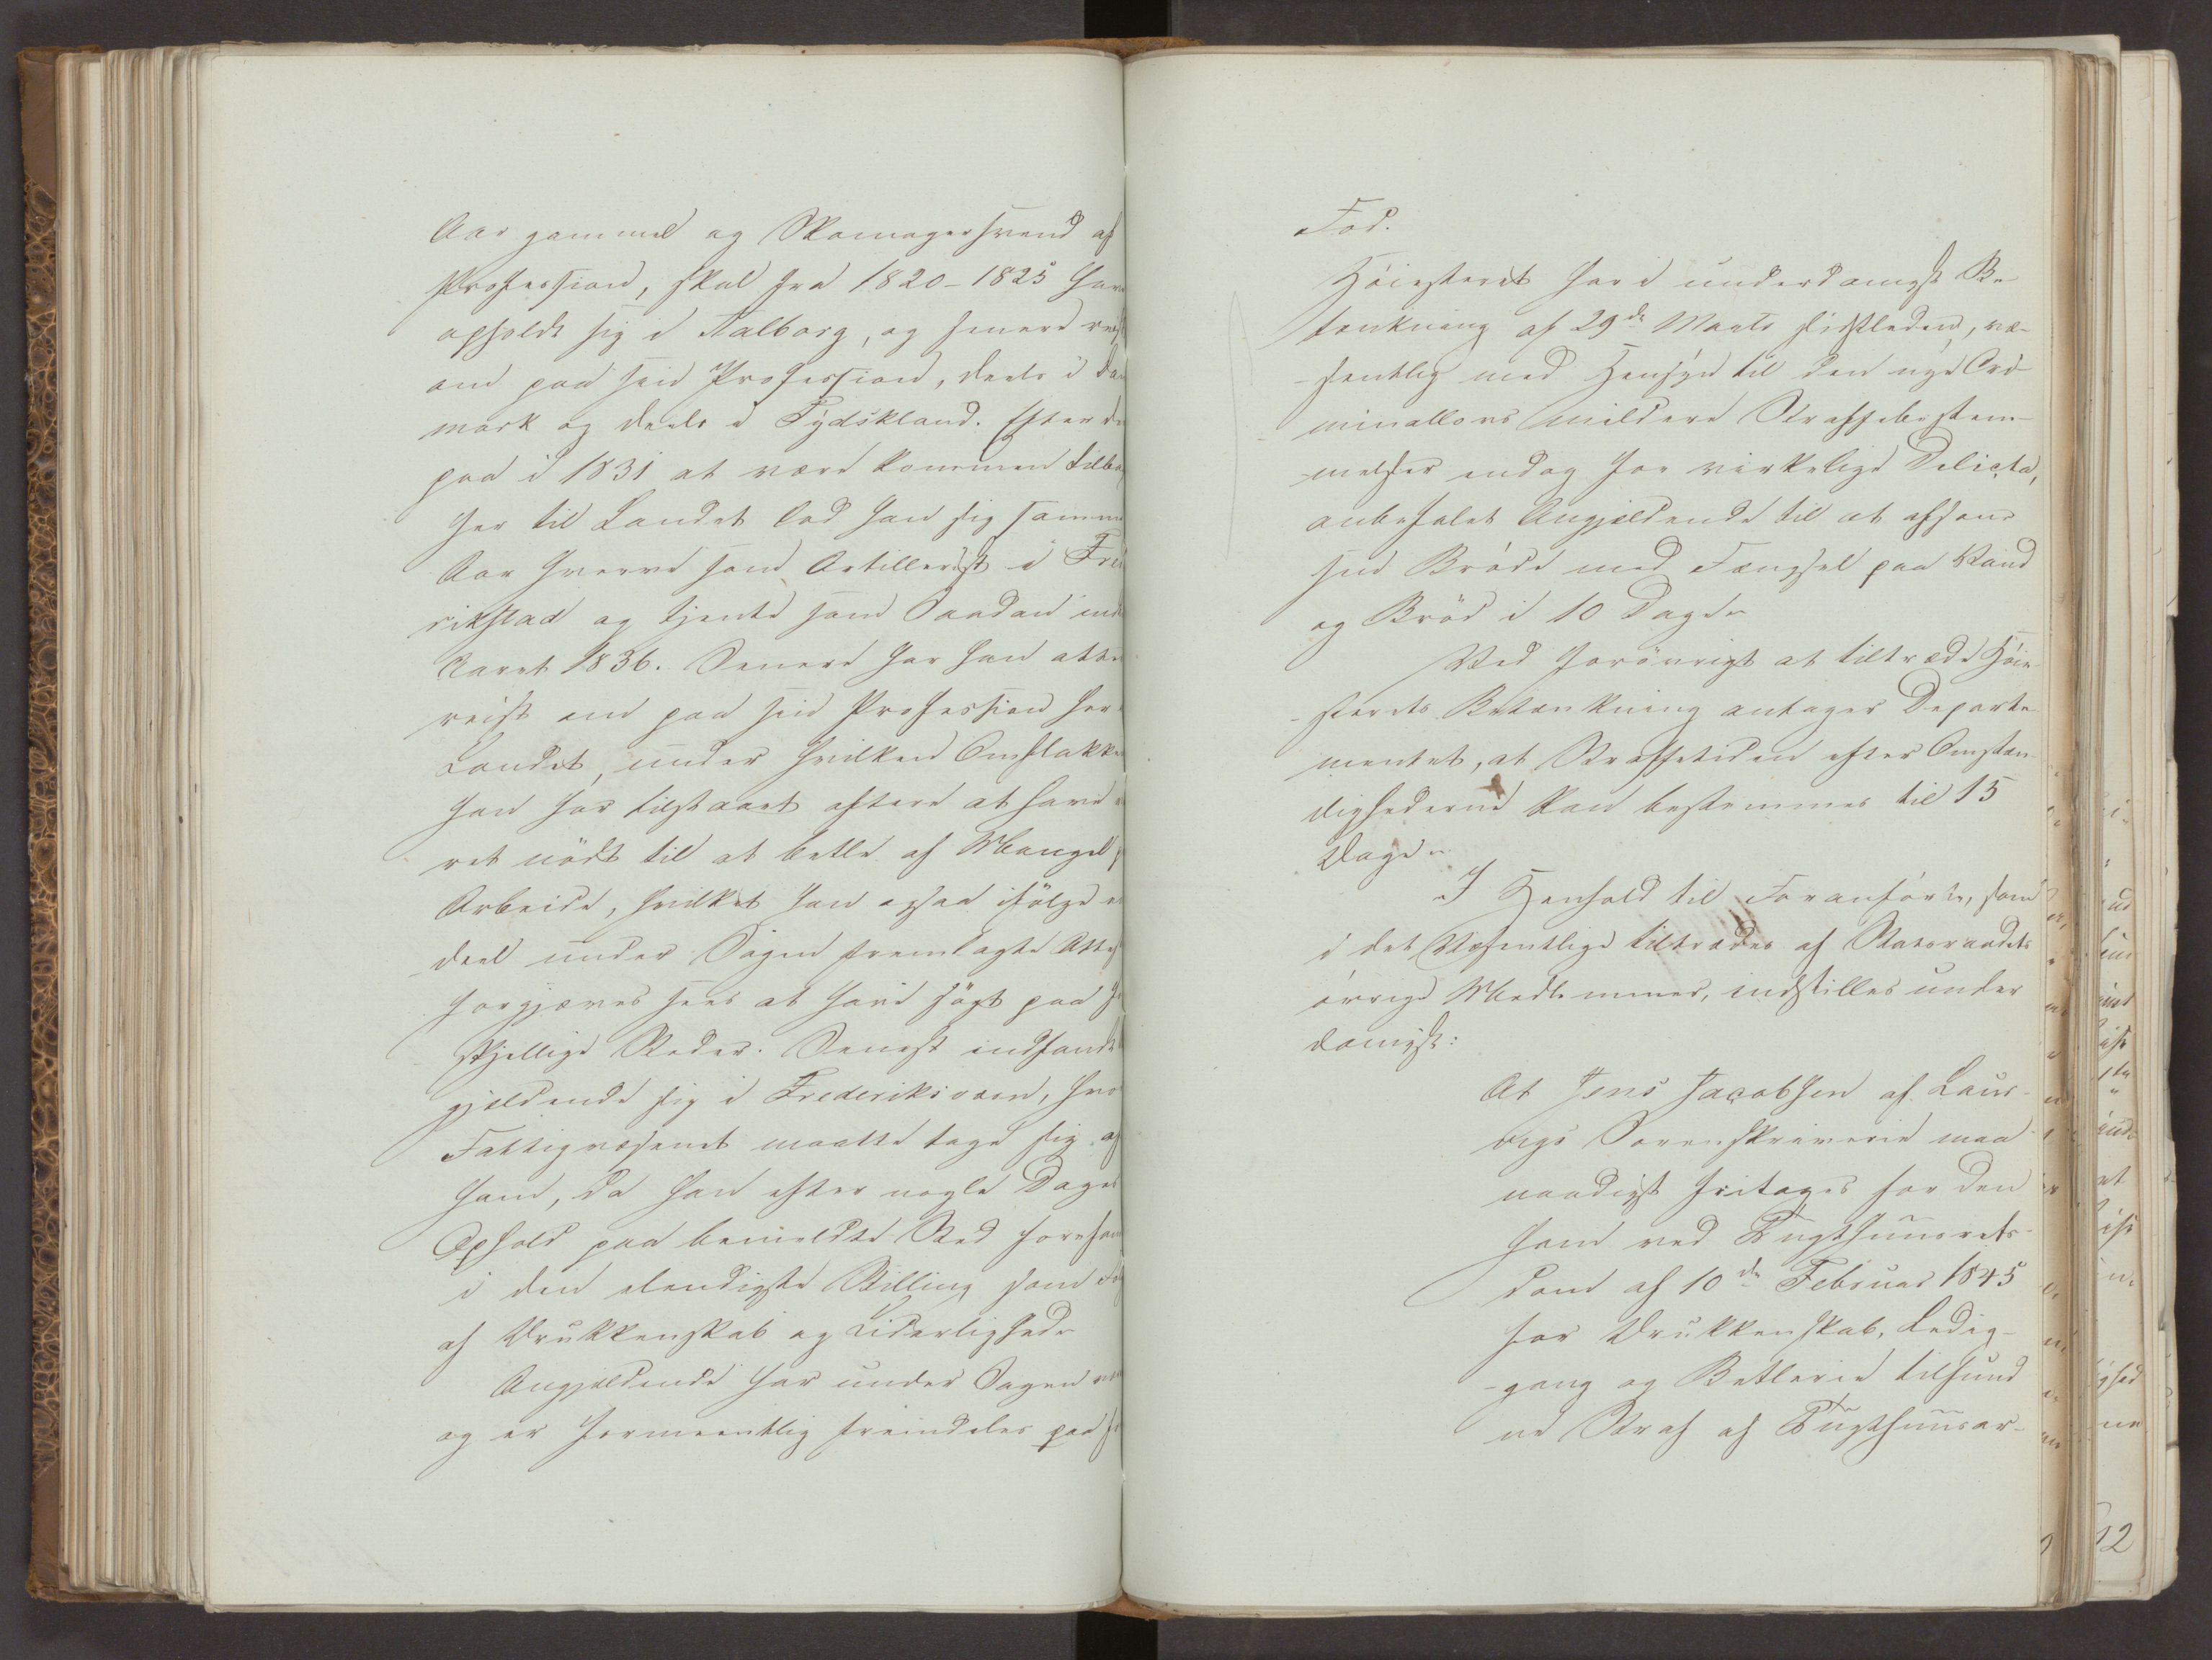 Aar gammel og Skomagersvend af
Profession, skal fra 1820-1825 have
opholdt sig i Aalborg, og senere reist
om paa sin Profession, deels i Dan
mark og deels i Tydskland. Efter der
paa i 1831 at være kommen tilbage
her til Landet lod han sig samme
Aar hverve som Artillerist i Fred
rikstad og tjente som Saadan indtil
Aaret 1836. Senere har han atter
reist om paa sin Profession her i
Landet, under hvilken Omflakken
han har tilstaaet oftere at have væ
ret nödt til at betle af Mangel p
Arbeide, hvilket han ogsaa ifölge en
deel under Sagen fremlagte Attest
forgjæves sees at have sögt paa for
skjellige Steder. Senest indfandt An
gjældende sig i Frederiksværn, hvor
Fattigvæsenet maatte tage sig af
ham, da han efter nogle Dages
Ophold paa bemeldte Sted forefandtes
i den elendigste Stilling som Fölge
af Drukkenskab og Liderlighed.
Angjældende har under Sagen været
og er formeentlig fremdeles paa fri
Fod.
Höiesteret har i underdanigst Be
tænkning af 29de Marts sidstleden, væ-
sentlig med Hensyn til den nye Cri-
minallovs mildere Straffebestem-
melser endog for virkelige Delicta,
anbefalet Angjældende til at afsone
sin Bröde med Fængsel paa Vand
og Bröd i 10 Dage.
Ved forövrigt at tiltræde Höie-
sterets Betænkning antager Departe
mentet, at Straffetiden efter Omstæn-
dighederne kan bestemmes til 15
Dage.
I Henhold til Foranförte, som
i det Væsentlige tiltrædes af Statsraadets
övrige Medlemmer, indstilles under
danigst:
At Jens Jacobsen af Laur-
vigs Sorenskriverie maa
naadigst fritages for den
ham ved Tugthuusrets-
dom af 10de Februar 1845
for Drukkenskab, Ledig-
gang og Betlerie tilfund
ne Straf af Tugthuusar-
12